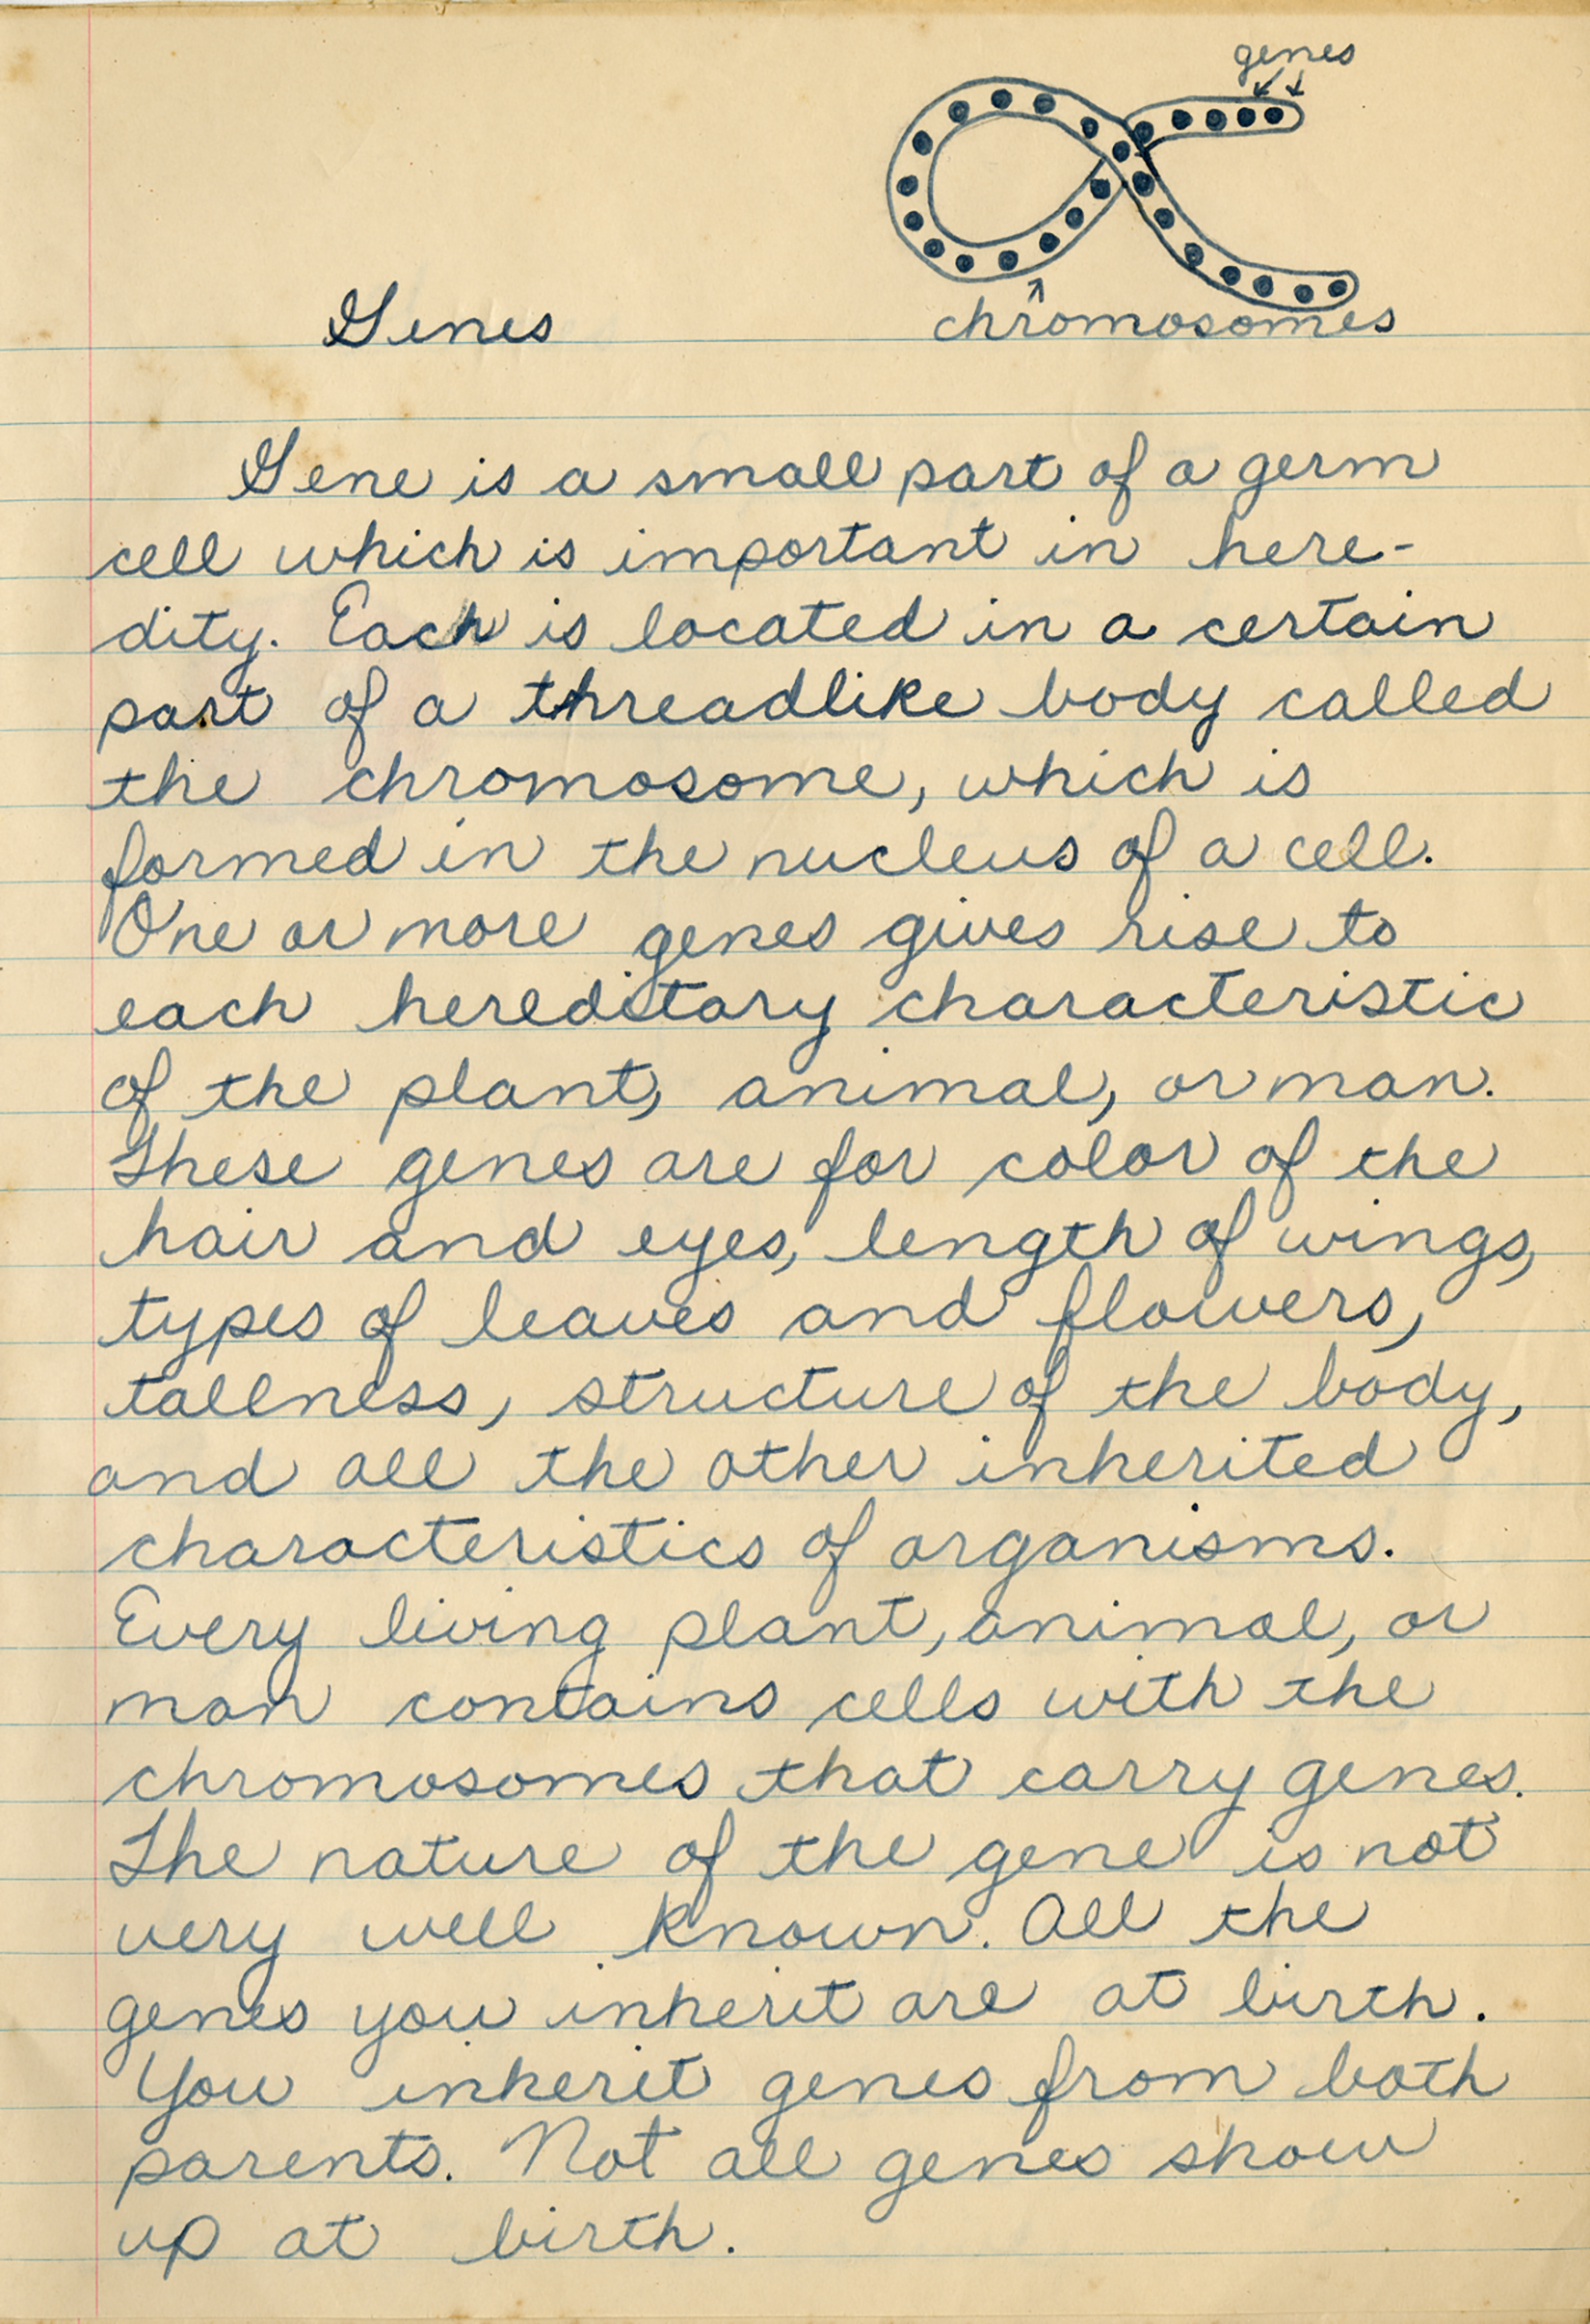 genes
chromosomes
Genes
Gene is a small part of a germ
cell which is important in here-
dity. Each is located in a certain
part of a threadlike body called
the chromosome, which is
formed in the nucleus of a cell.
One or more genes gives rise to
each hereditary characteristic
of the plant, animal, or man.
These genes are for color of the
hair and eyes, length of wings,
types of leaves and flowers,
tallness, structure of the body,
and all the other inherited
characteristics of organisms.
Every living plant, animal, or
man contains cells with the
chromosomes that carry genes.
The nature of the gene is not
very well known. All the
genes you inherit are at birth.
You inherit genes from both
parents. Not all genes show
up at birth.